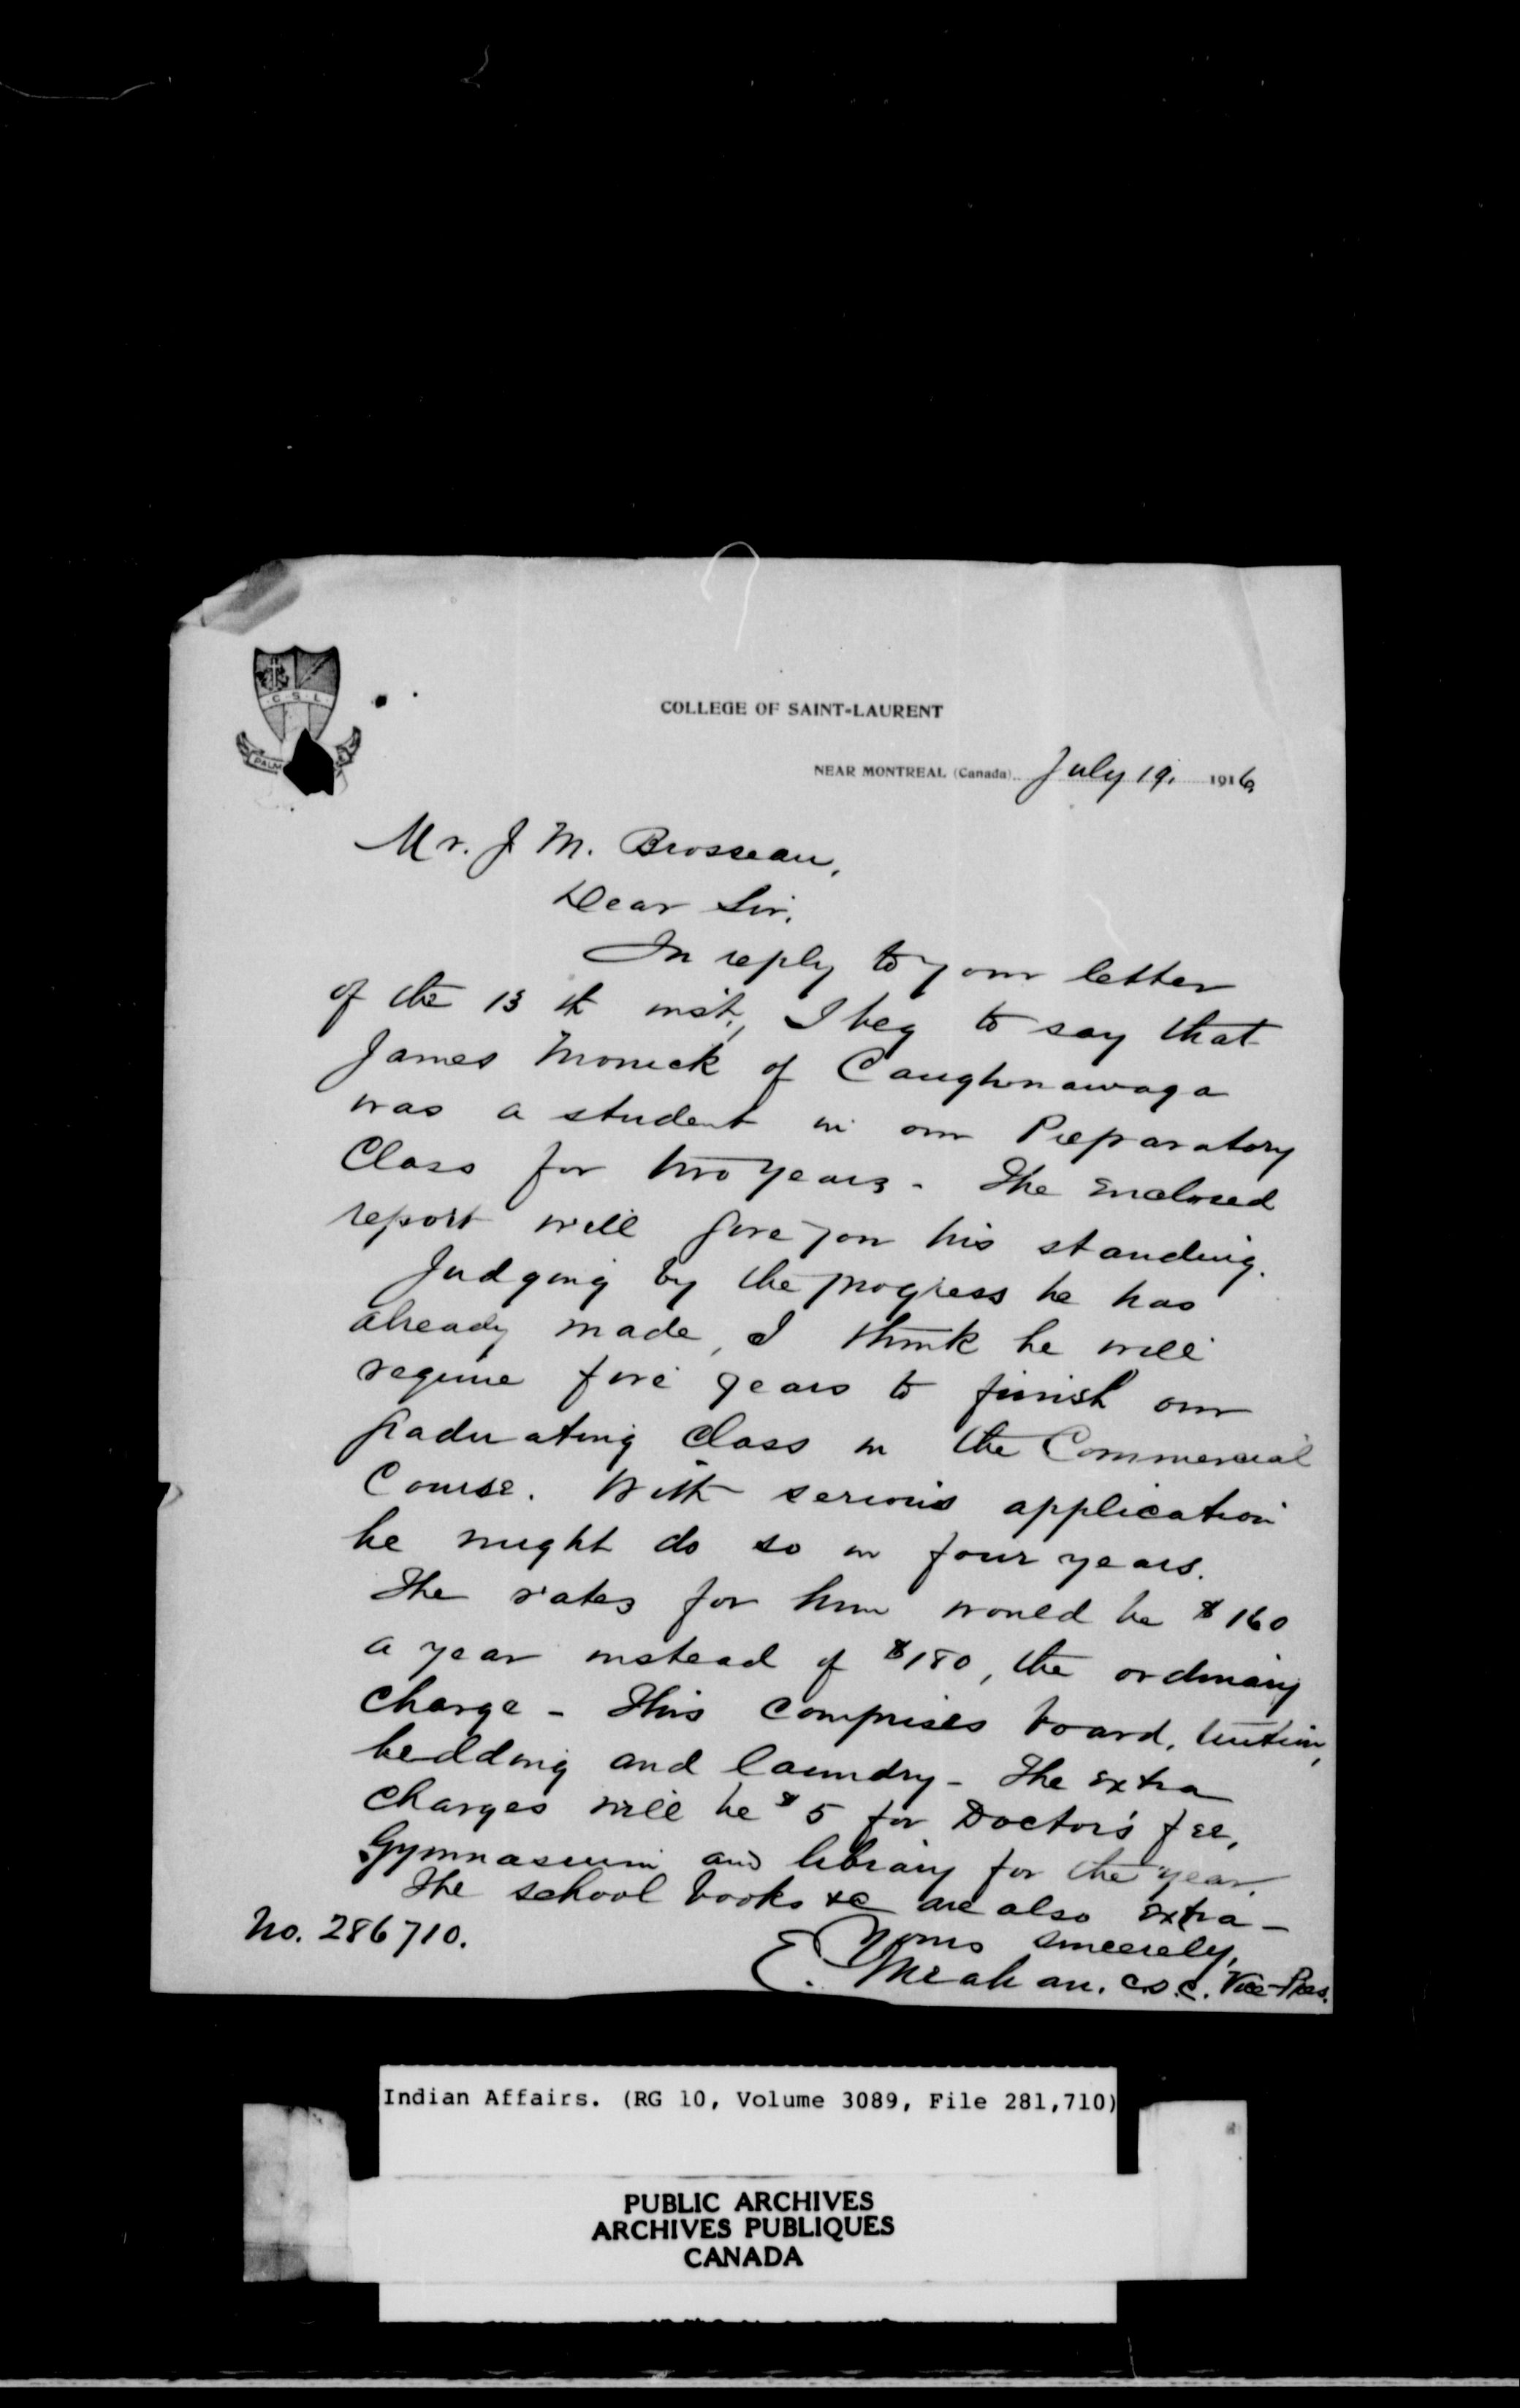 C.S.L.
PALM
COLLEGE OF SAINT-LAURENT
NEAR MONTREAL (Canada) July 19. 1916
Mr. J. M. Brosseau,
Dear Sir,
In reply to your letter
of the 13th inst., I beg to say that
James Monick of Caughnawaga
was a student in our Preparatory
Class for two years. The enclosed
report will give you his standing.
Judging by the progress he has
already made, I think he will
require five years to finish our
graduating class in the Commercial
Course. With serious application
he might do so in four years.
The rates for him would be $160
a year instead of $180, the ordinary
charge - This comprises board, tuition,
bedding and laundry - The extra
charges will be $5 for Doctor's fee,
Gymnasium and library for the year.
The school books &c are also extra -
Yours sincerely,
No. 286710.
E. Meahan. c.s.c. Vice-Pres.
Indian Affairs. (RG 10, Volume 3089, File 281,710)
PUBLIC ARCHIVES
ARCHIVES PUBLIQUES
CANADA